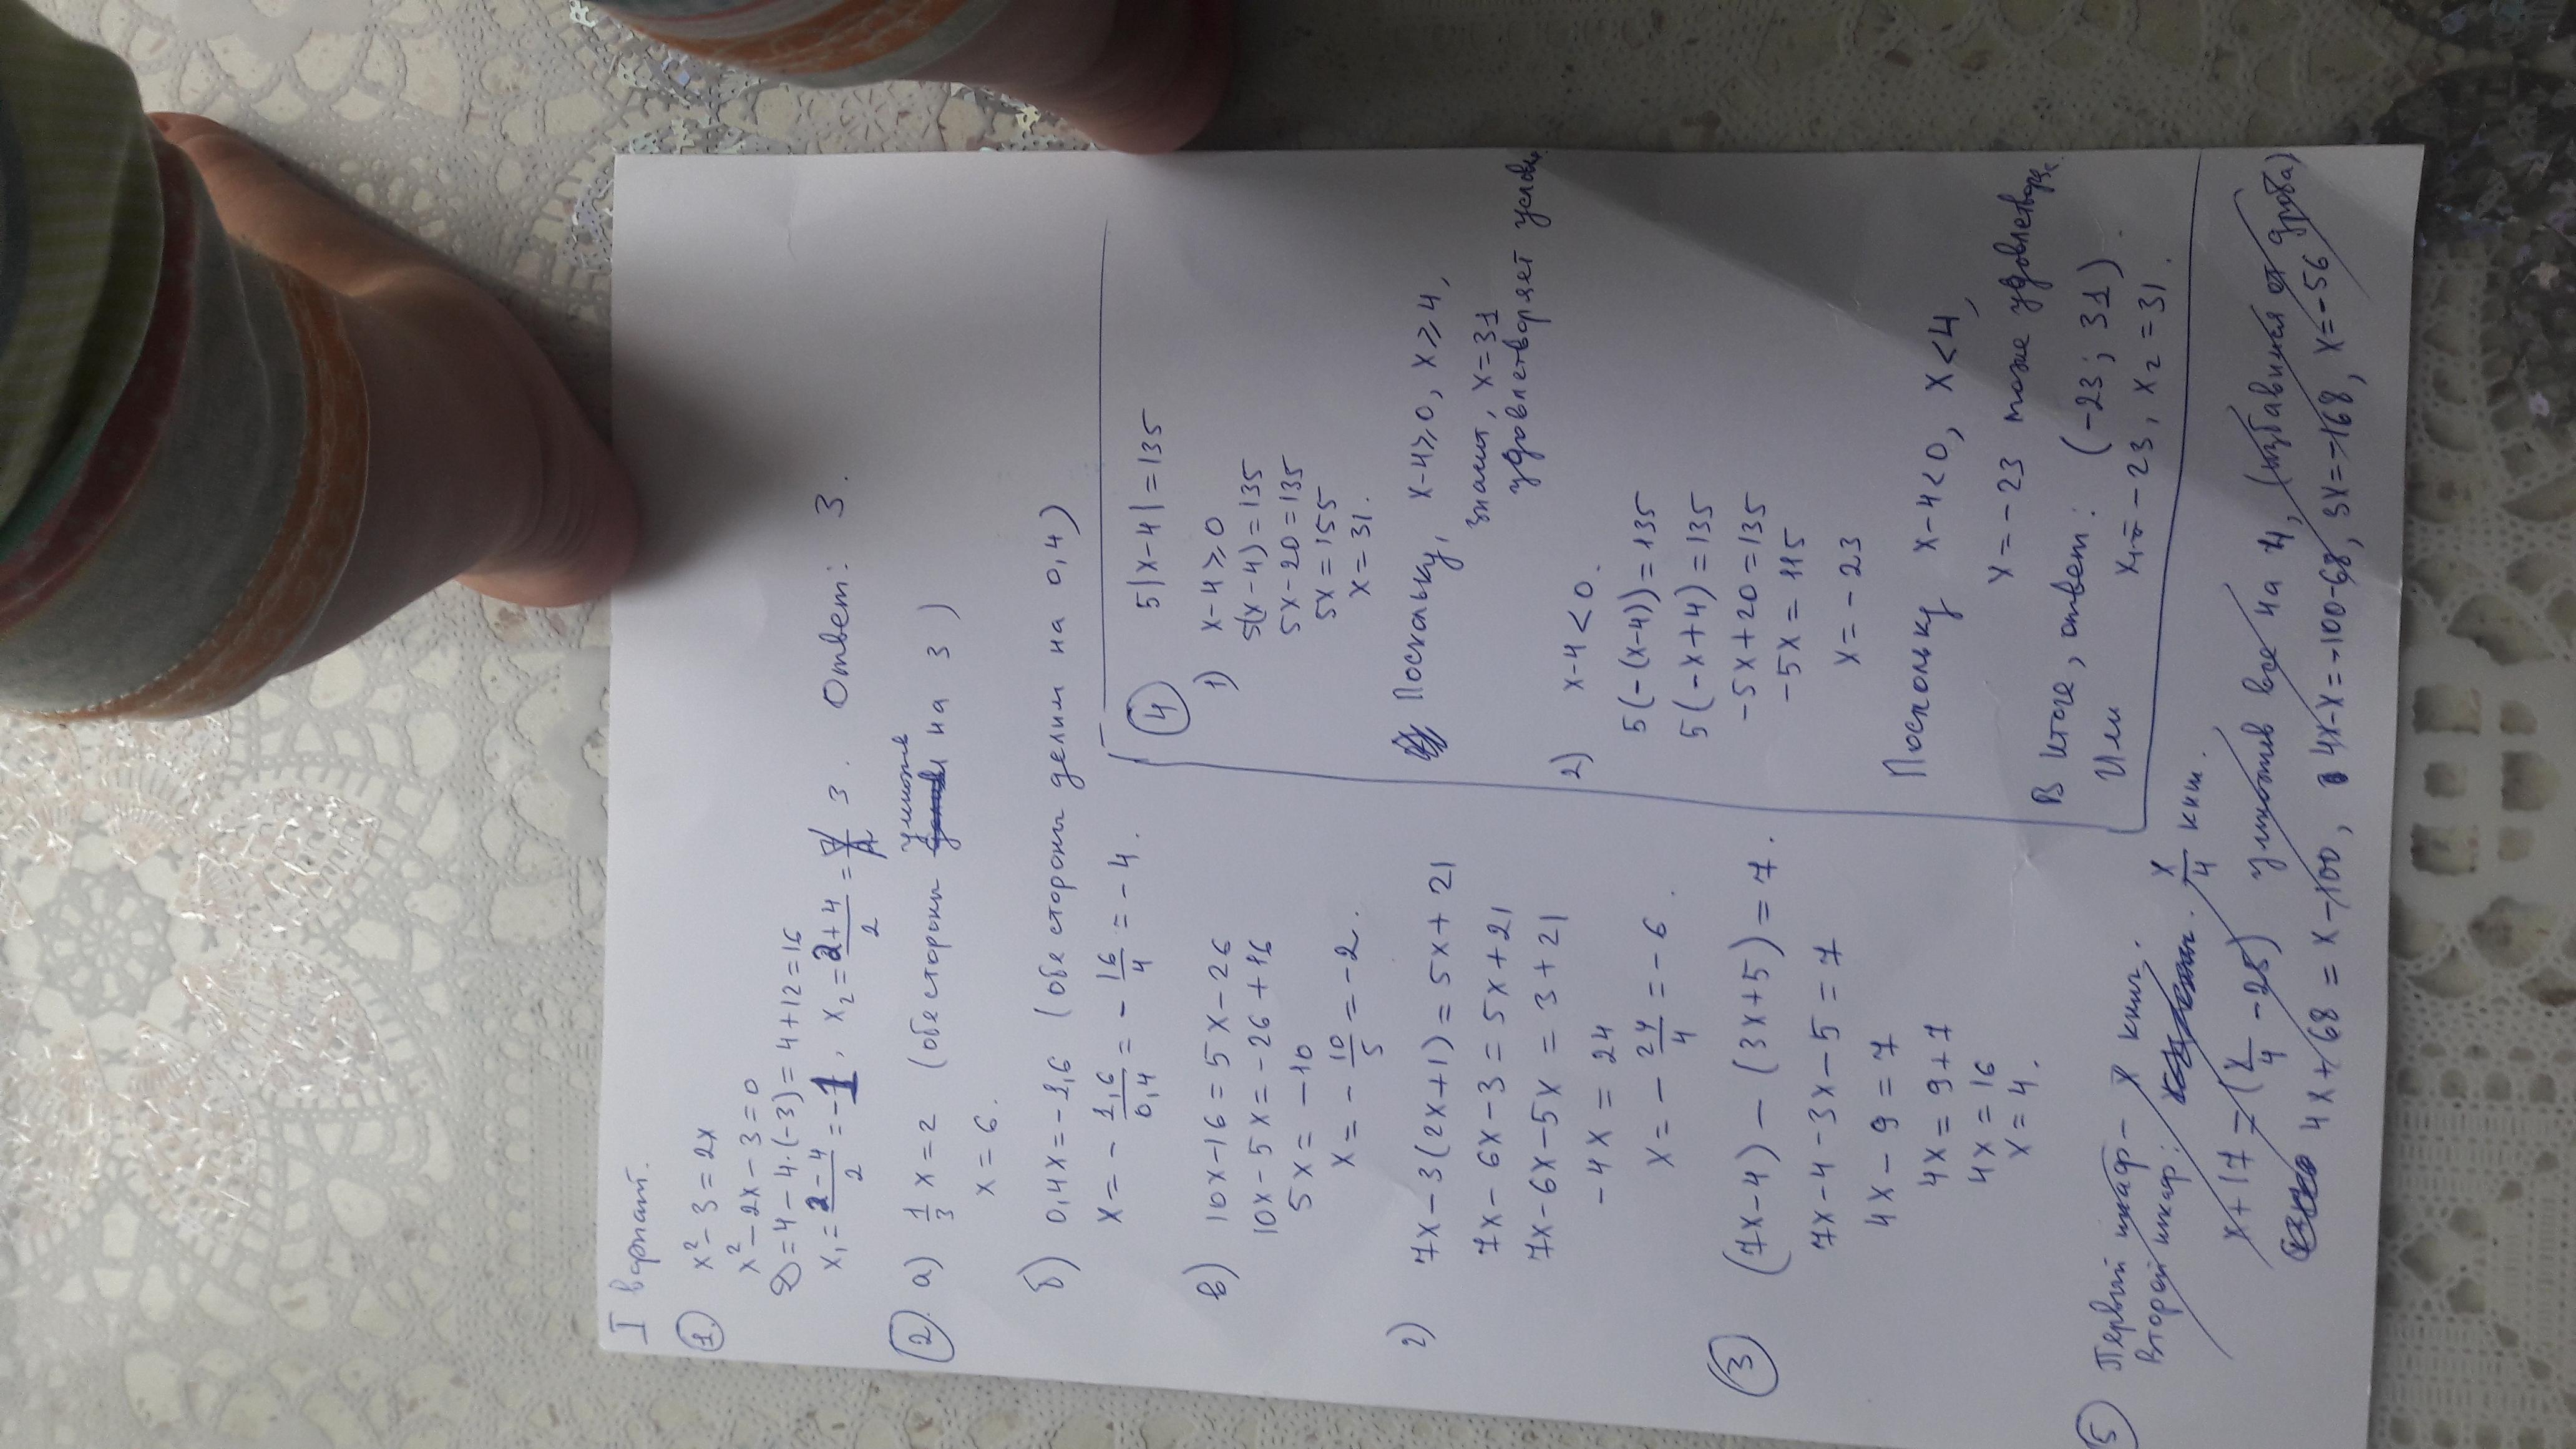 I вариант.
① x² - 3 = 2x
x² - 2x - 3 = 0
D = 4 - 4·(-3) = 4 + 12 = 16
x₁ = (2-4)/2 = -1, x₂ = (2+4)/2 = 3. Ответ: 3.
②. а) 1/3 x = 2 (обе стороны умножив на 3)
x = 6.
б) 0,4x = -1,6 (обе стороны делим на 0,4)
x = - 1,6/0,4 = - 16/4 = -4.
в) 10x - 16 = 5x - 26
10x - 5x = -26 + 16
5x = -10
x = - 10/5 = -2.
г) 7x - 3(2x+1) = 5x + 21
7x - 6x - 3 = 5x + 21
7x - 6x - 5x = 3 + 21
-4x = 24
x = - 24/4 = -6.
③ (7x-4) - (3x+5) = 7.
7x - 4 - 3x - 5 = 7
4x - 9 = 7
4x = 9 + 7
4x = 16
x = 4.
④ 5|x-4| = 135
1) x-4 ≥ 0
5(x-4) = 135
5x - 20 = 135
5x = 155
x = 31.
Поскольку, x-4≥0, x ≥ 4,
значит, x = 31
удовлетворяет услови
2) x-4 < 0.
5(-(x-4)) = 135
5(-x+4) = 135
-5x + 20 = 135
-5x = 115
x = -23
Поскольку x-4<0, x<4,
x = -23 тоже удовлетворя
В итоге, ответ: (-23; 31).
Или x₁ = -23, x₂ = 31.
⑤ Первый шкаф - x книг.
Второй шкаф: x/4 книг.
x + 17 = (x/4 - 25) умножив все на 4, (избавимся от дроби)
4x + 68 = x - 100, 4x - x = -100 - 68, 3x = -168, x = -56